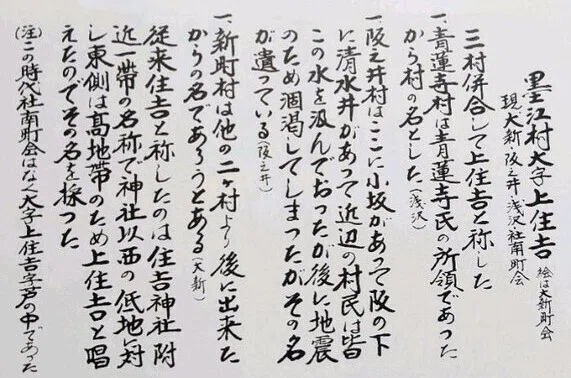 墨江村大字上住吉 絵は大新町会
現大新、阪之井、浅沢、社南町会
三村併合して上住吉と称した
一、青蓮寺村は青蓮寺氏の所領であった
から村の名とした(浅沢)
一、阪之井村はここに小坂があって阪の下
に清水井があって近辺の村民は皆
この水を汲んでおったが後に地震
のため涸渇してしまったがその名
が遺っている(阪之井)
一、新町村は他の二ヶ村より後に出来た
からの名であろうとある(大新)
従来住吉と称したのは住吉神社附
近一帯の名称で神社以西の低地に対
し東側は高地帯のため上住吉と唱
えたのでその名を採った
(注)この時代社南町会はなく大字上住吉字芦の中であった